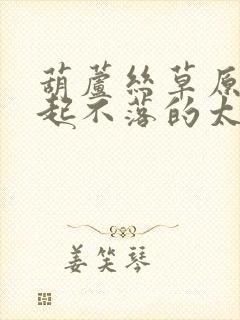 葫蘆絲草原
起不落的太
姜笑琴